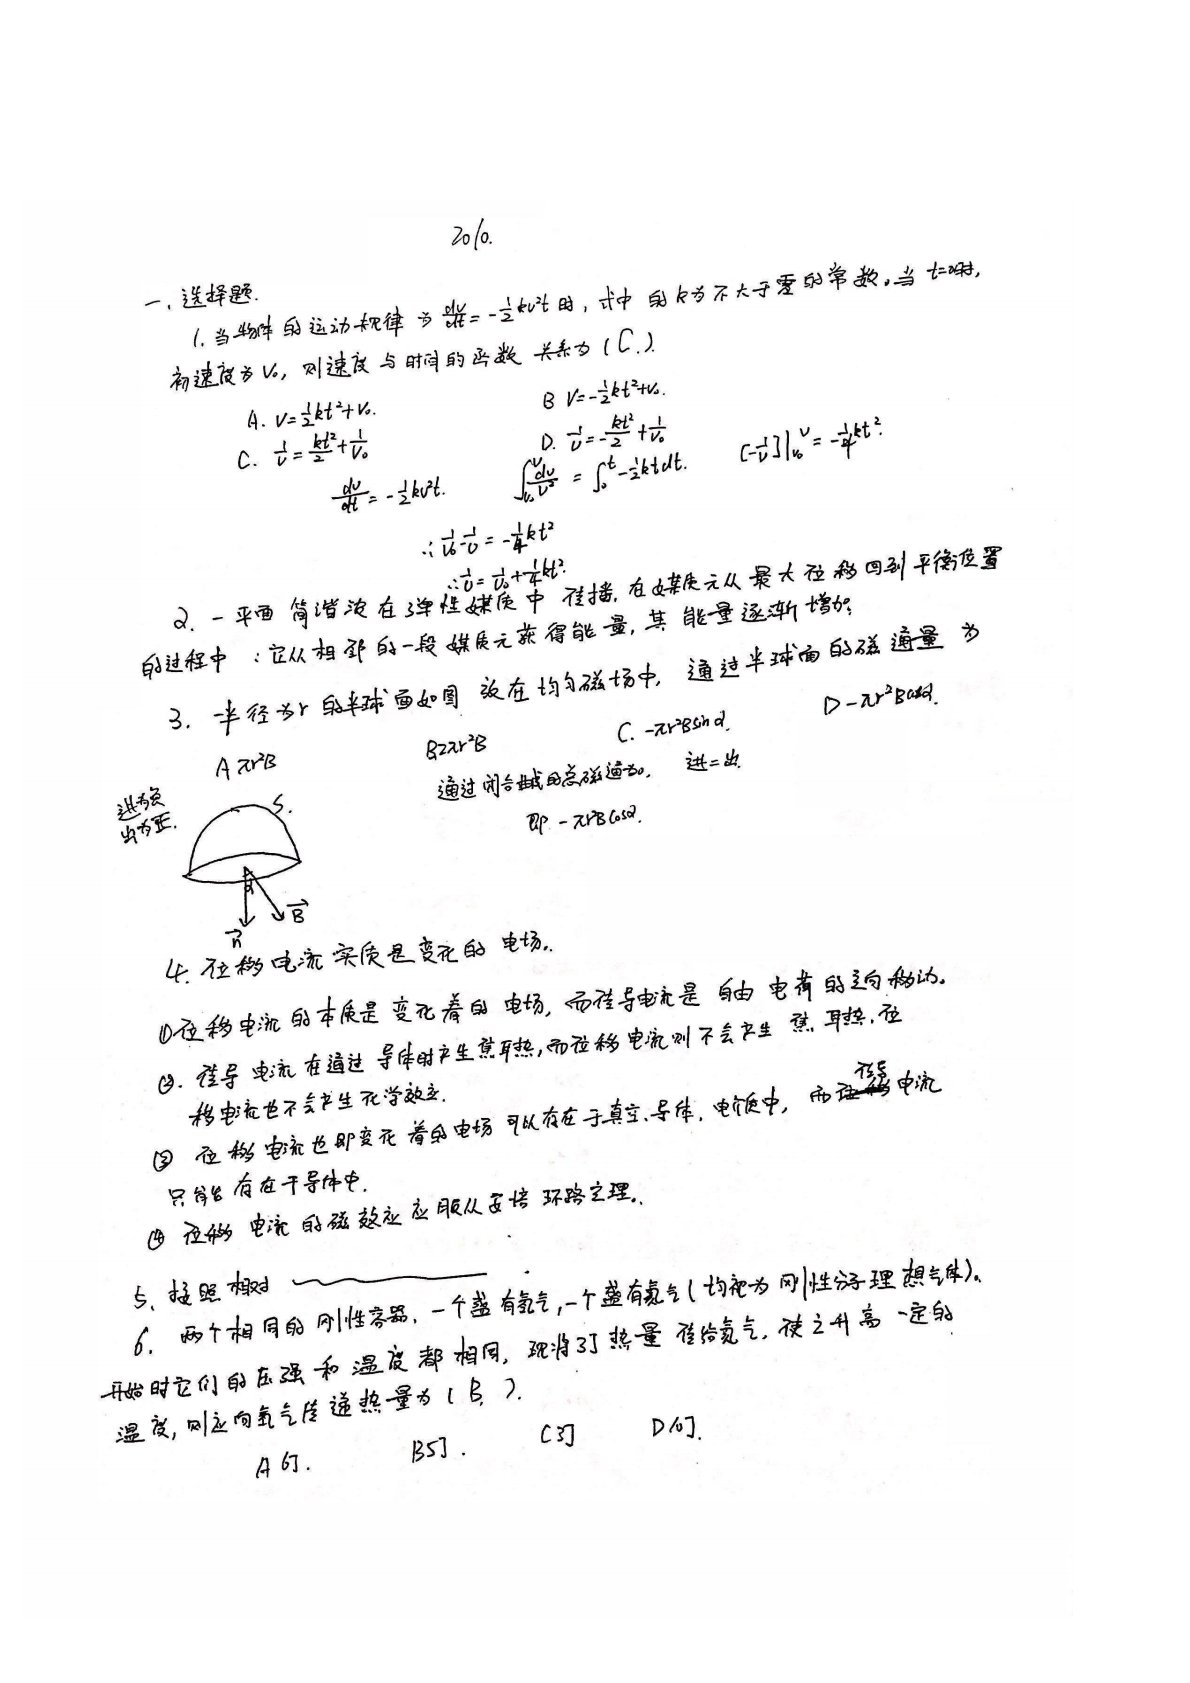 2010.
一、选择题.
1. 当物体的运动规律为 dv/dt = -1/2 kv²t 时，式中的k为不大于零的常数。当t=0时，
初速度为V₀，则速度与时间的函数关系为（C.）.
A. V=1/2kt²+V₀. B V=-1/2kt²+V₀.
C. 1/V=kt²/2+1/V₀ D. 1/V=-kt²/2+1/V₀
dv/dt=-1/2kv²t. ∫_{V₀}^{V} dv/v² = ∫_0^t -1/2ktdt. [-1/V]|_{V₀}^{V} = -1/4kt².
∴ 1/V₀-1/V = -1/4kt²
∴ 1/V = 1/V₀+1/4kt².
2. 一平面简谐波在弹性媒质中传播，在媒质元从最大位移回到平衡位置
的过程中：它从相邻的一段媒质元获得能量，其能量逐渐增加.
3. 半径为r的半球面如图放在均匀磁场中，通过半球面的磁通量为
A πr²B B2πr²B C. -πr²Bsinα. D -πr²Bcosα.
通过闭合曲线的总磁通为0. 进=出.
即 -πr²Bcosα.
进为负
出为正.
S.
α
n B
4. 位移电流实质是变化的电场.
①位移电流的本质是变化着的电场，而传导电流是自由电荷的定向移动.
②. 传导电流在通过导体时产生焦耳热,而位移电流则不会产生焦耳热.位
移电流也不会产生化学效应.
③ 位移电流也即变化着的电场可以存在于真空、导体、电介质中，而传导电流
只能存在于导体中.
④ 位移电流的磁效应应服从安培环路定理.
5. 按照相对
6. 两个相同的刚性容器，一个盛有氢气,一个盛有氦气(均视为刚性分子理想气体).
开始时它们的压强和温度都相同，现将3J热量传给氦气，使之升高一定的
温度,则应向氢气传递热量为（B.）.
A 6J. B5J. C3J D10J.